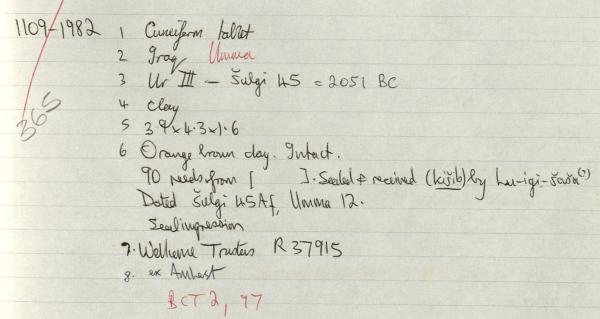 1109-1982 1 Cuneiform tablet
365
2 Iraq Umma
3 Ur III - Šulgi 45 = 2051 BC
4 Clay
5 3.9 x 4.3 x 1.6
6 Orange brown clay. Intact.
90 reeds from [ ]. Sealed & received (kišib) by Lu-igi-šaša(?)
Dated Šulgi 45Af, Umma 12.
Seal impression
7. Wellcome Trustees R37915
8. ex Amherst
BCT 2, 97